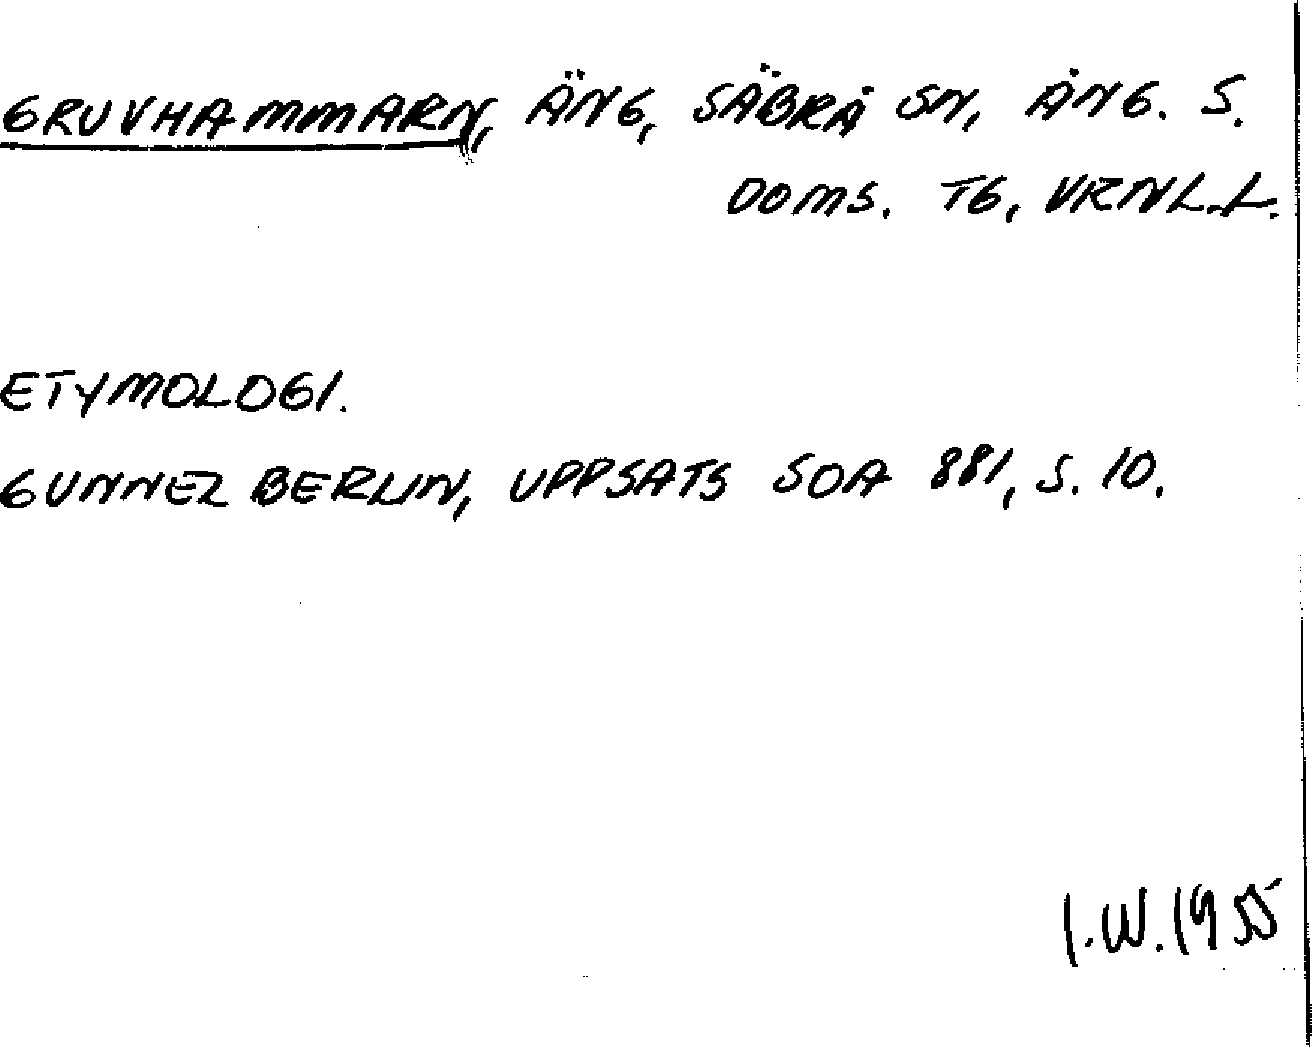 GRUVHAMMARN, ÄNG, SÄBRÅ SN, ÅNG. S.
DOMS. TG, VRNL.L.
ETYMOLOGI.
GUNNEL BERLIN, UPPSATS SOA 881, S. 10.
I.W. 1955